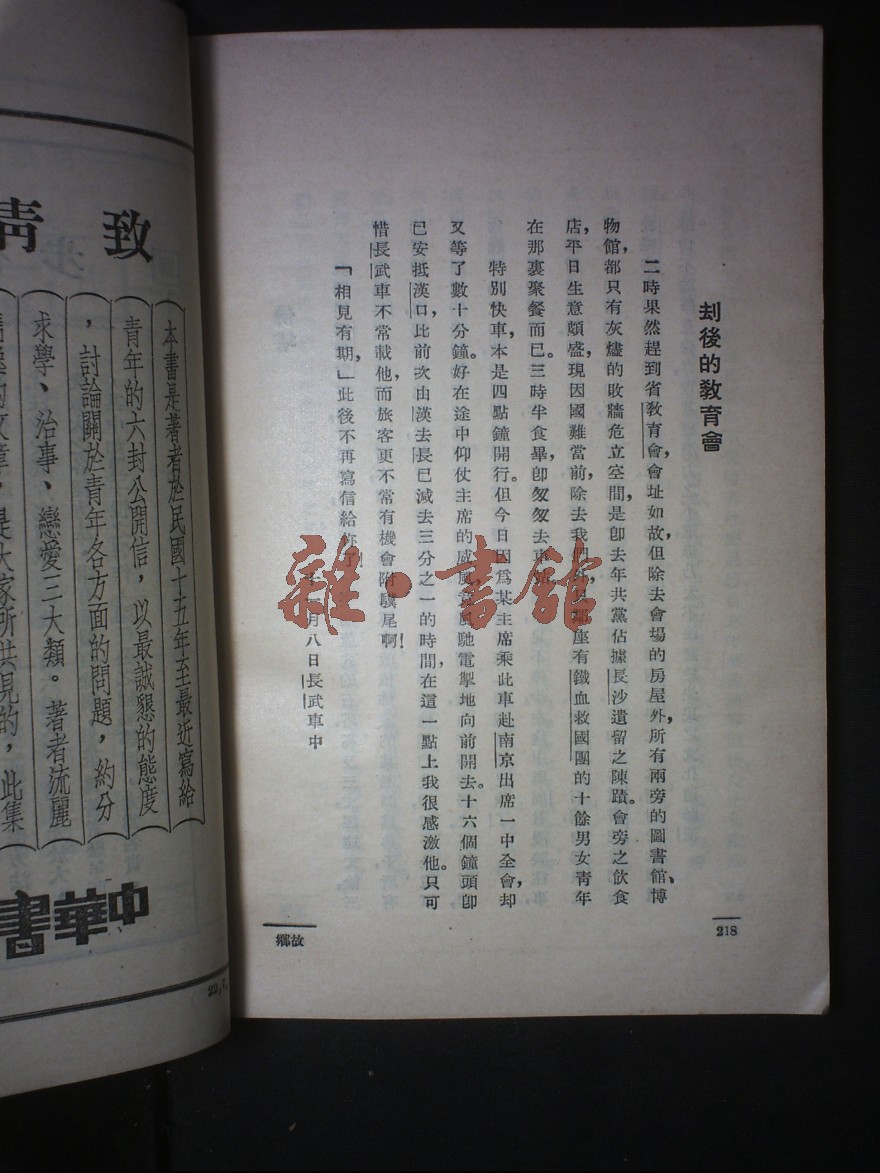 刦後的教育會
二時果然趕到省教育會，會址如故，但除去會場的房屋外，所有兩旁的圖書館、博
物館，都只有灰燼的敗牆危立空間，是卽去年共黨佔據長沙遺留之陳蹟。會旁之飲食
店，平日生意頗盛，現因國難當前，除去我們外，只鄰座有鐵血救國團的十餘男女青年
在那裏聚餐而已。三時半食畢，卽匆匆去車站。
特別快車，本是四點鐘開行。但今日因爲某主席乘此車赴南京出席一中全會，却
又等了數十分鐘。好在途中仰仗主席的威風，風馳電掣地向前開去。十六個鐘頭卽
已安抵漢口，比前次由漢去長已減去三分之一的時間，在這一點上我很感激他。只可
惜長武車不常載他，而旅客更不常有機會附驥尾啊！
「相見有期，」此後不再寫信給你了。
月八日長武車中
218
故鄉
雜·書館
致青
本書是著者於民國十五年至最近寫給
青年的六封公開信，以最誠懇的態度
，討論關於青年各方面的問題，約分
求學、治事、戀愛三大類。著者流麗
的文章，是大家所共見的，此集
中華書